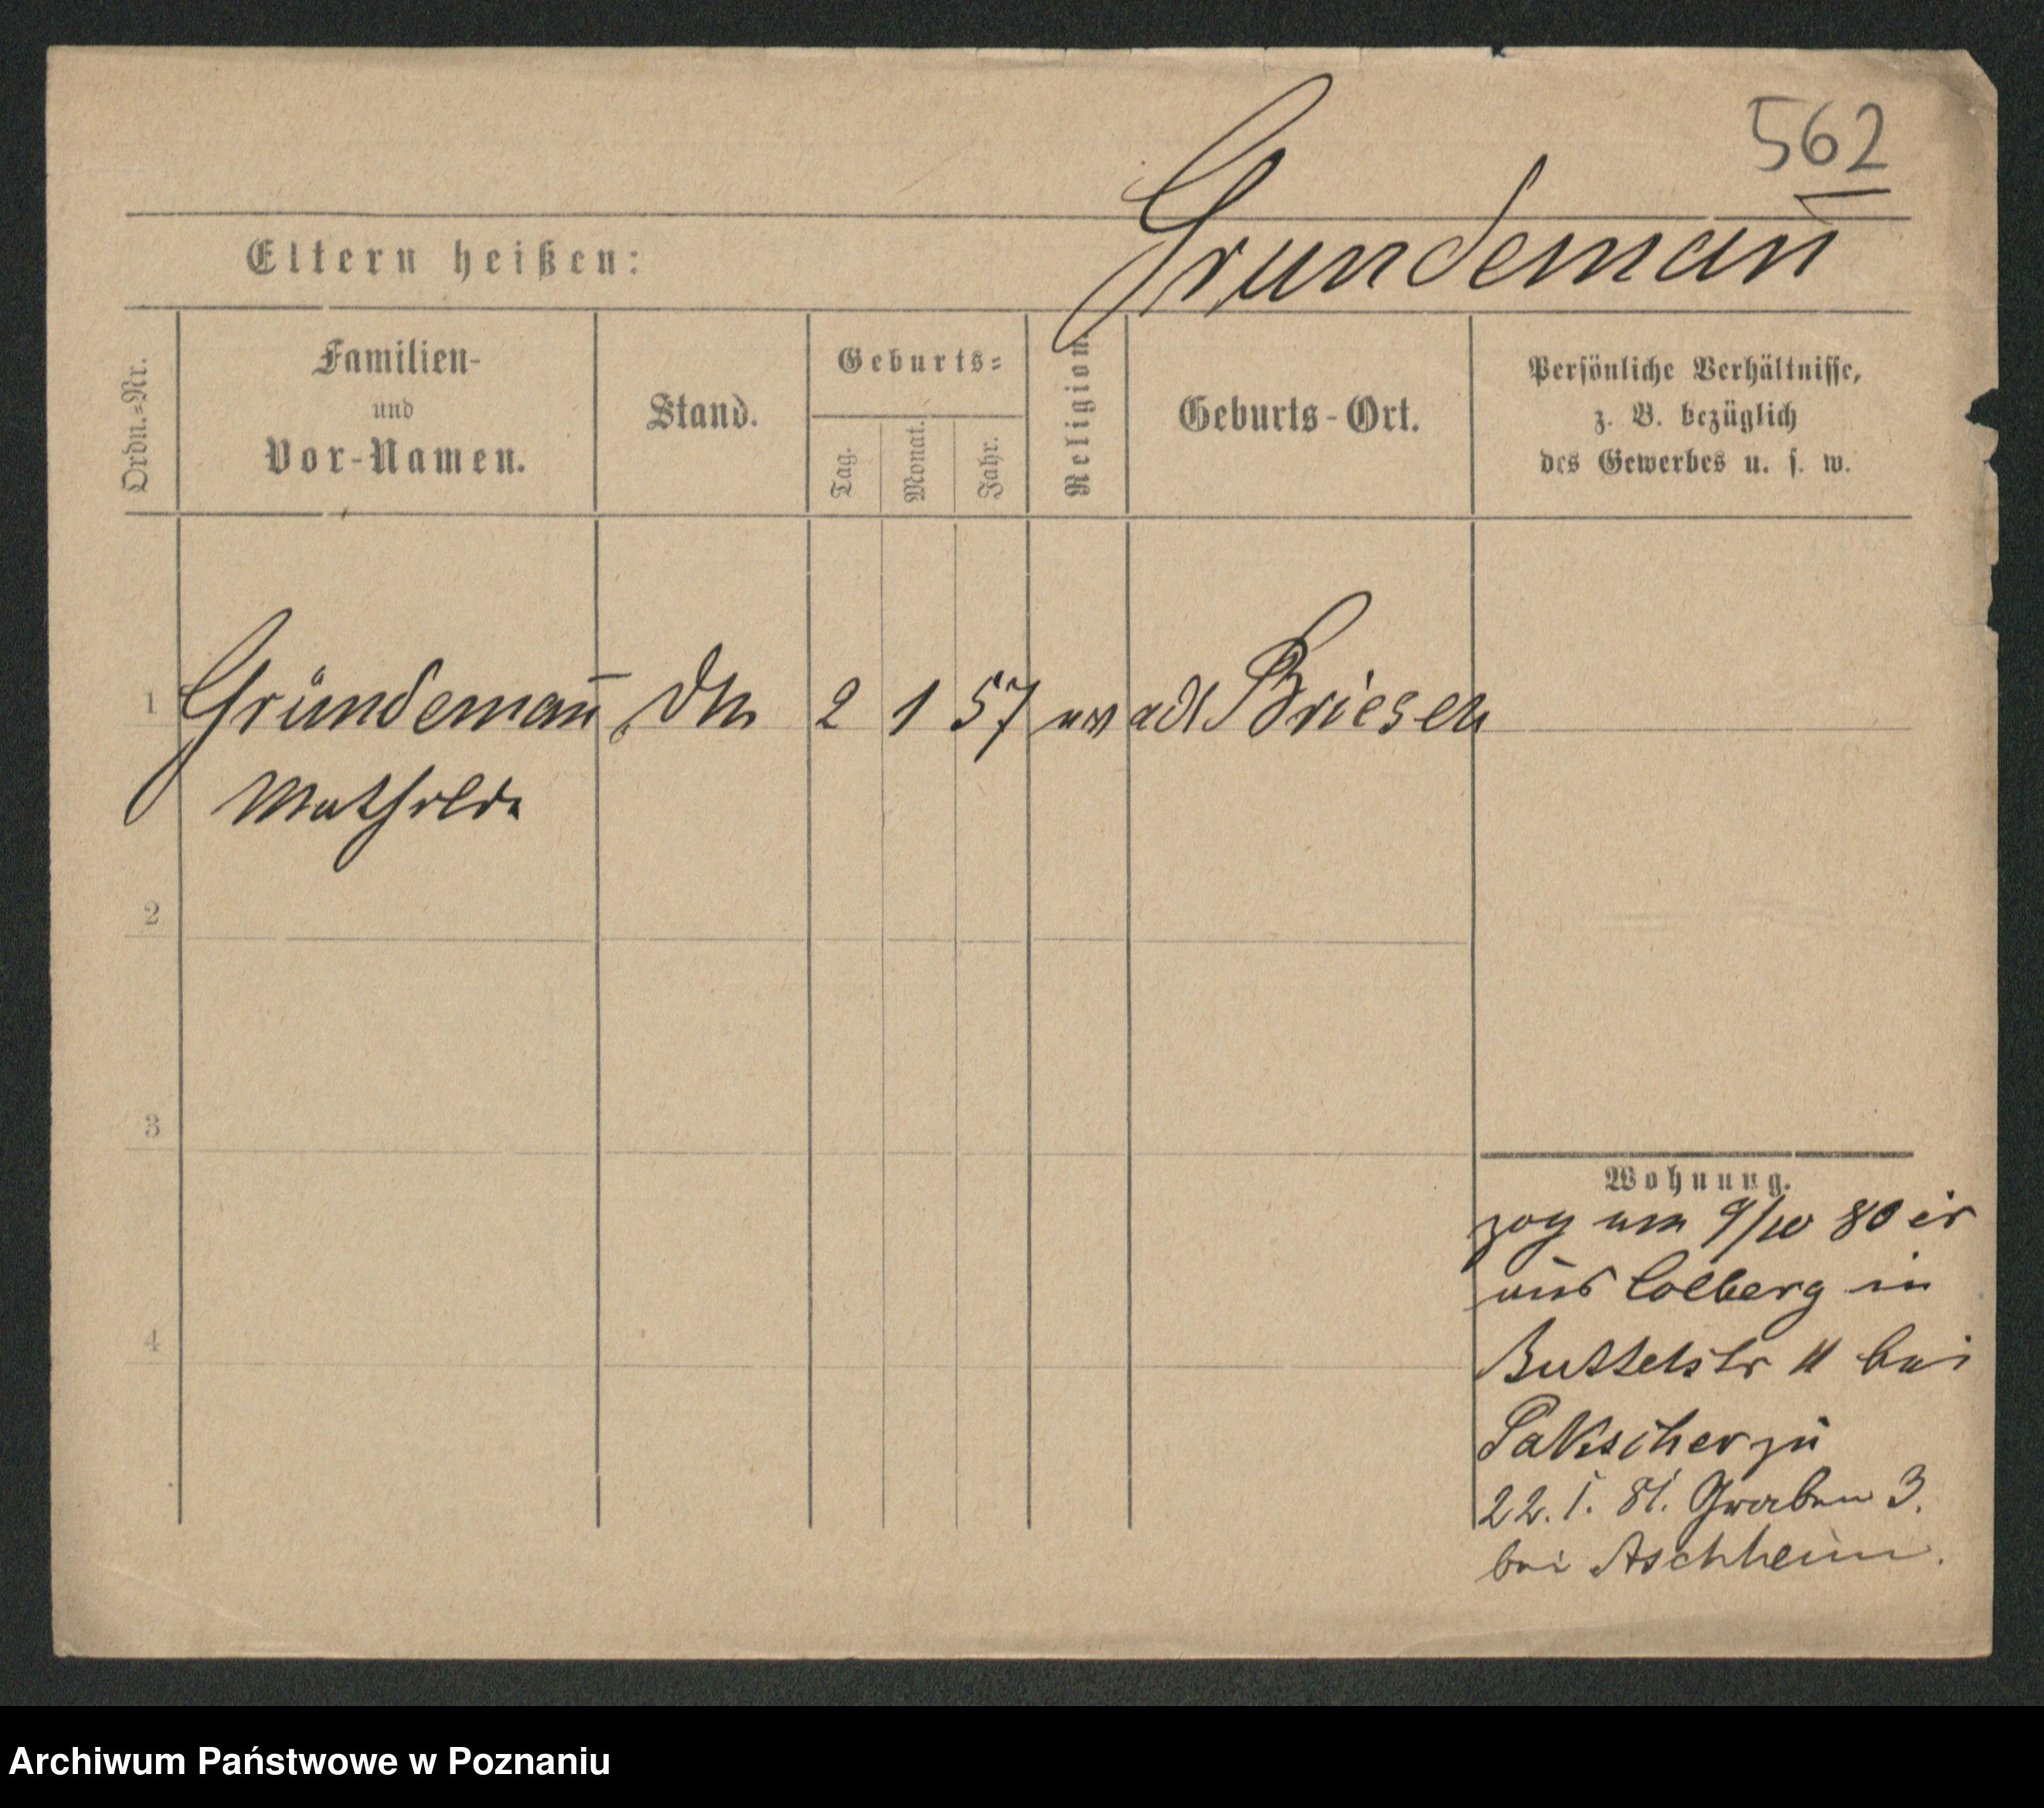 562
Grundemañ
Eltern heißen:
Ordn.=Nr.
Familien-
und
Vor-Namen.
Stand.
Geburts=
Tag.
Monat.
Jahr.
Religion.
Geburts-Ort.
Persönliche Verhältnisse,
z. B. bezüglich
des Gewerbes u. s. w.
1 Grundemañ 2 1 57 adl Briesen
Mathilde
2
3
4
Wohnung.
zog am 9/10 80 er
aus Colberg in
Buttelstr 11 bei
Pakscher zu
22. 1. 81. Graben 3.
bei Aschheim.
Archiwum Państwowe w Poznaniu